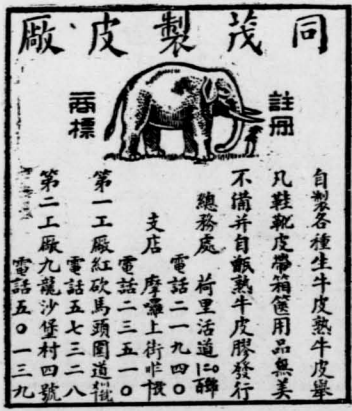 同茂製皮廠
註冊
商標
自製各種生牛皮熟牛皮舉
凡鞋靴皮帶箱篋用品無美
不備并自甑熟牛皮膠發行
總務處 荷里活道
電話二一九四〇
支店 摩囉上街
電話二三五一〇
第一工廠紅砍馬頭圍道
電話五七三二八
第二工廠九龍沙堡村四號
電話五〇一三九